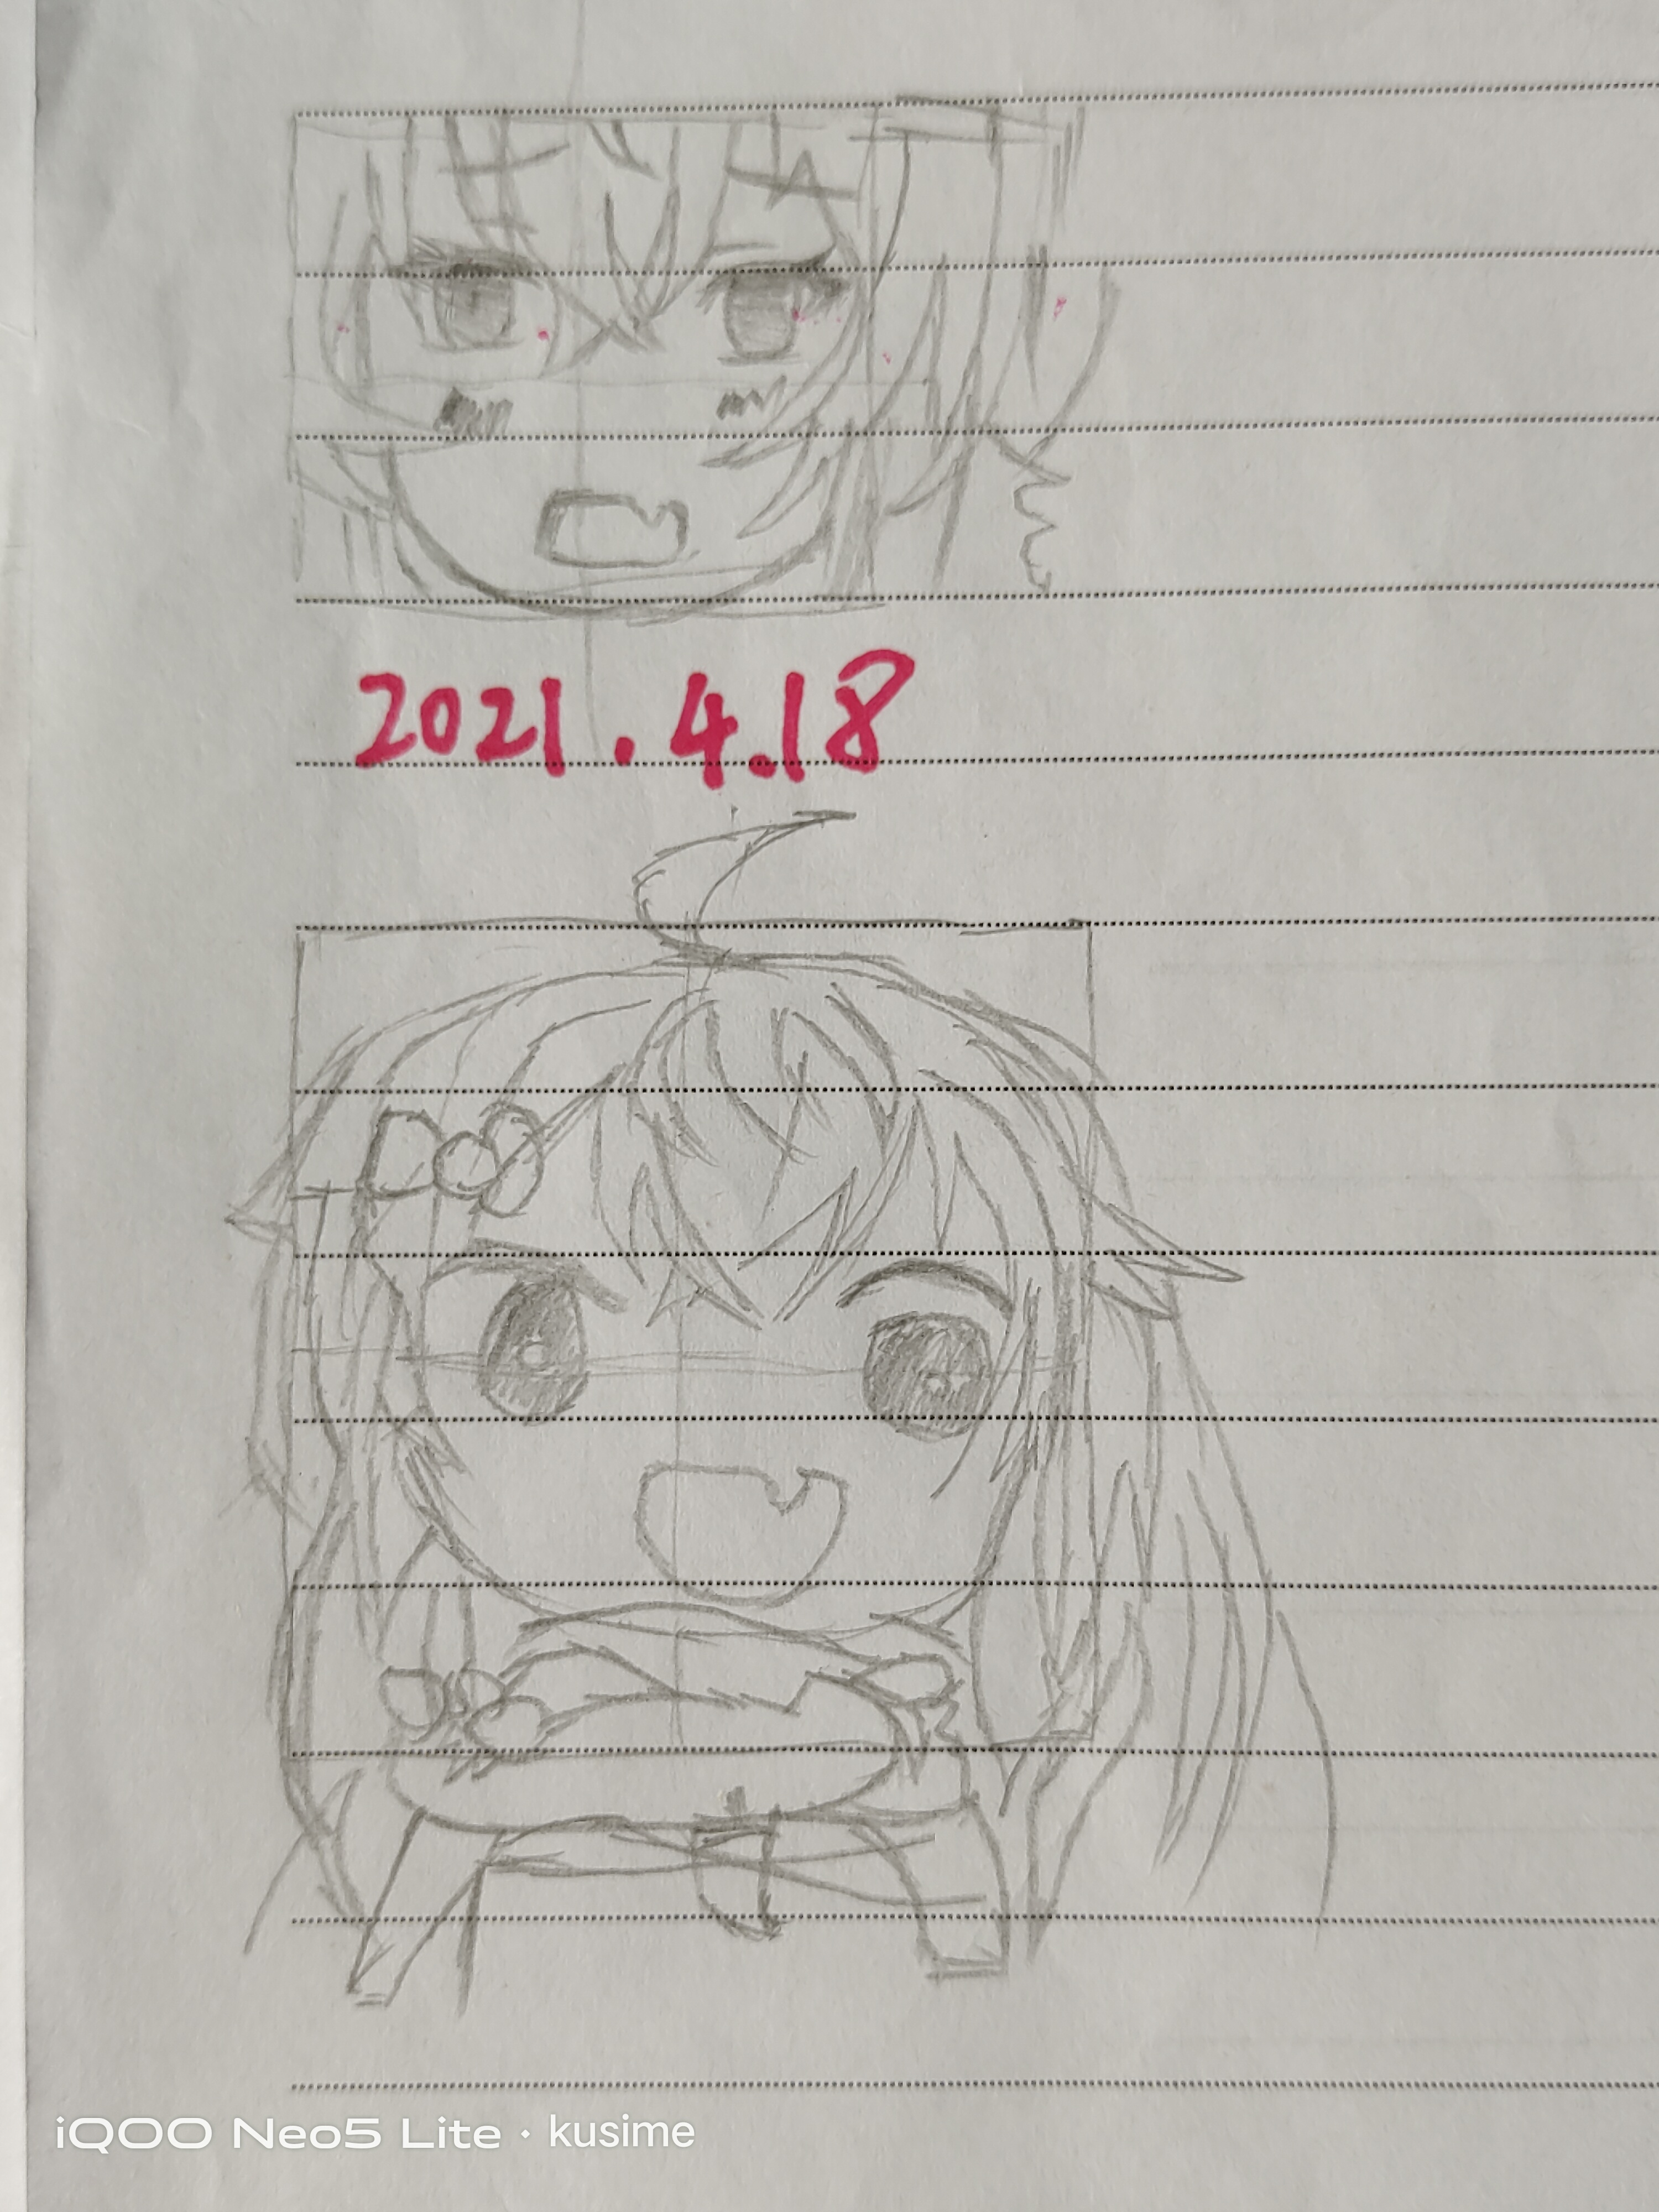 2021.4.18
iQOO Neo5 Lite · kusime